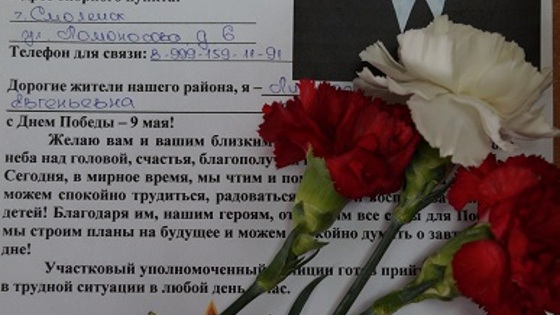 г. Смоленск
ул. Ломоносова д 6
Телефон для связи: 8-999-159-11-91
Дорогие жители нашего района, я –
Евгеньевна
с Днем Победы – 9 мая!
Желаю вам и вашим близким
неба над головой, счастья,
Сегодня, в мирное время, мы чтим и
можем спокойно трудиться, радоваться
детей! Благодаря им, нашим героям, все для
мы строим планы на будущее и можем думать о
дне!
Участковый уполномоченный
в трудной ситуации в любой день час.